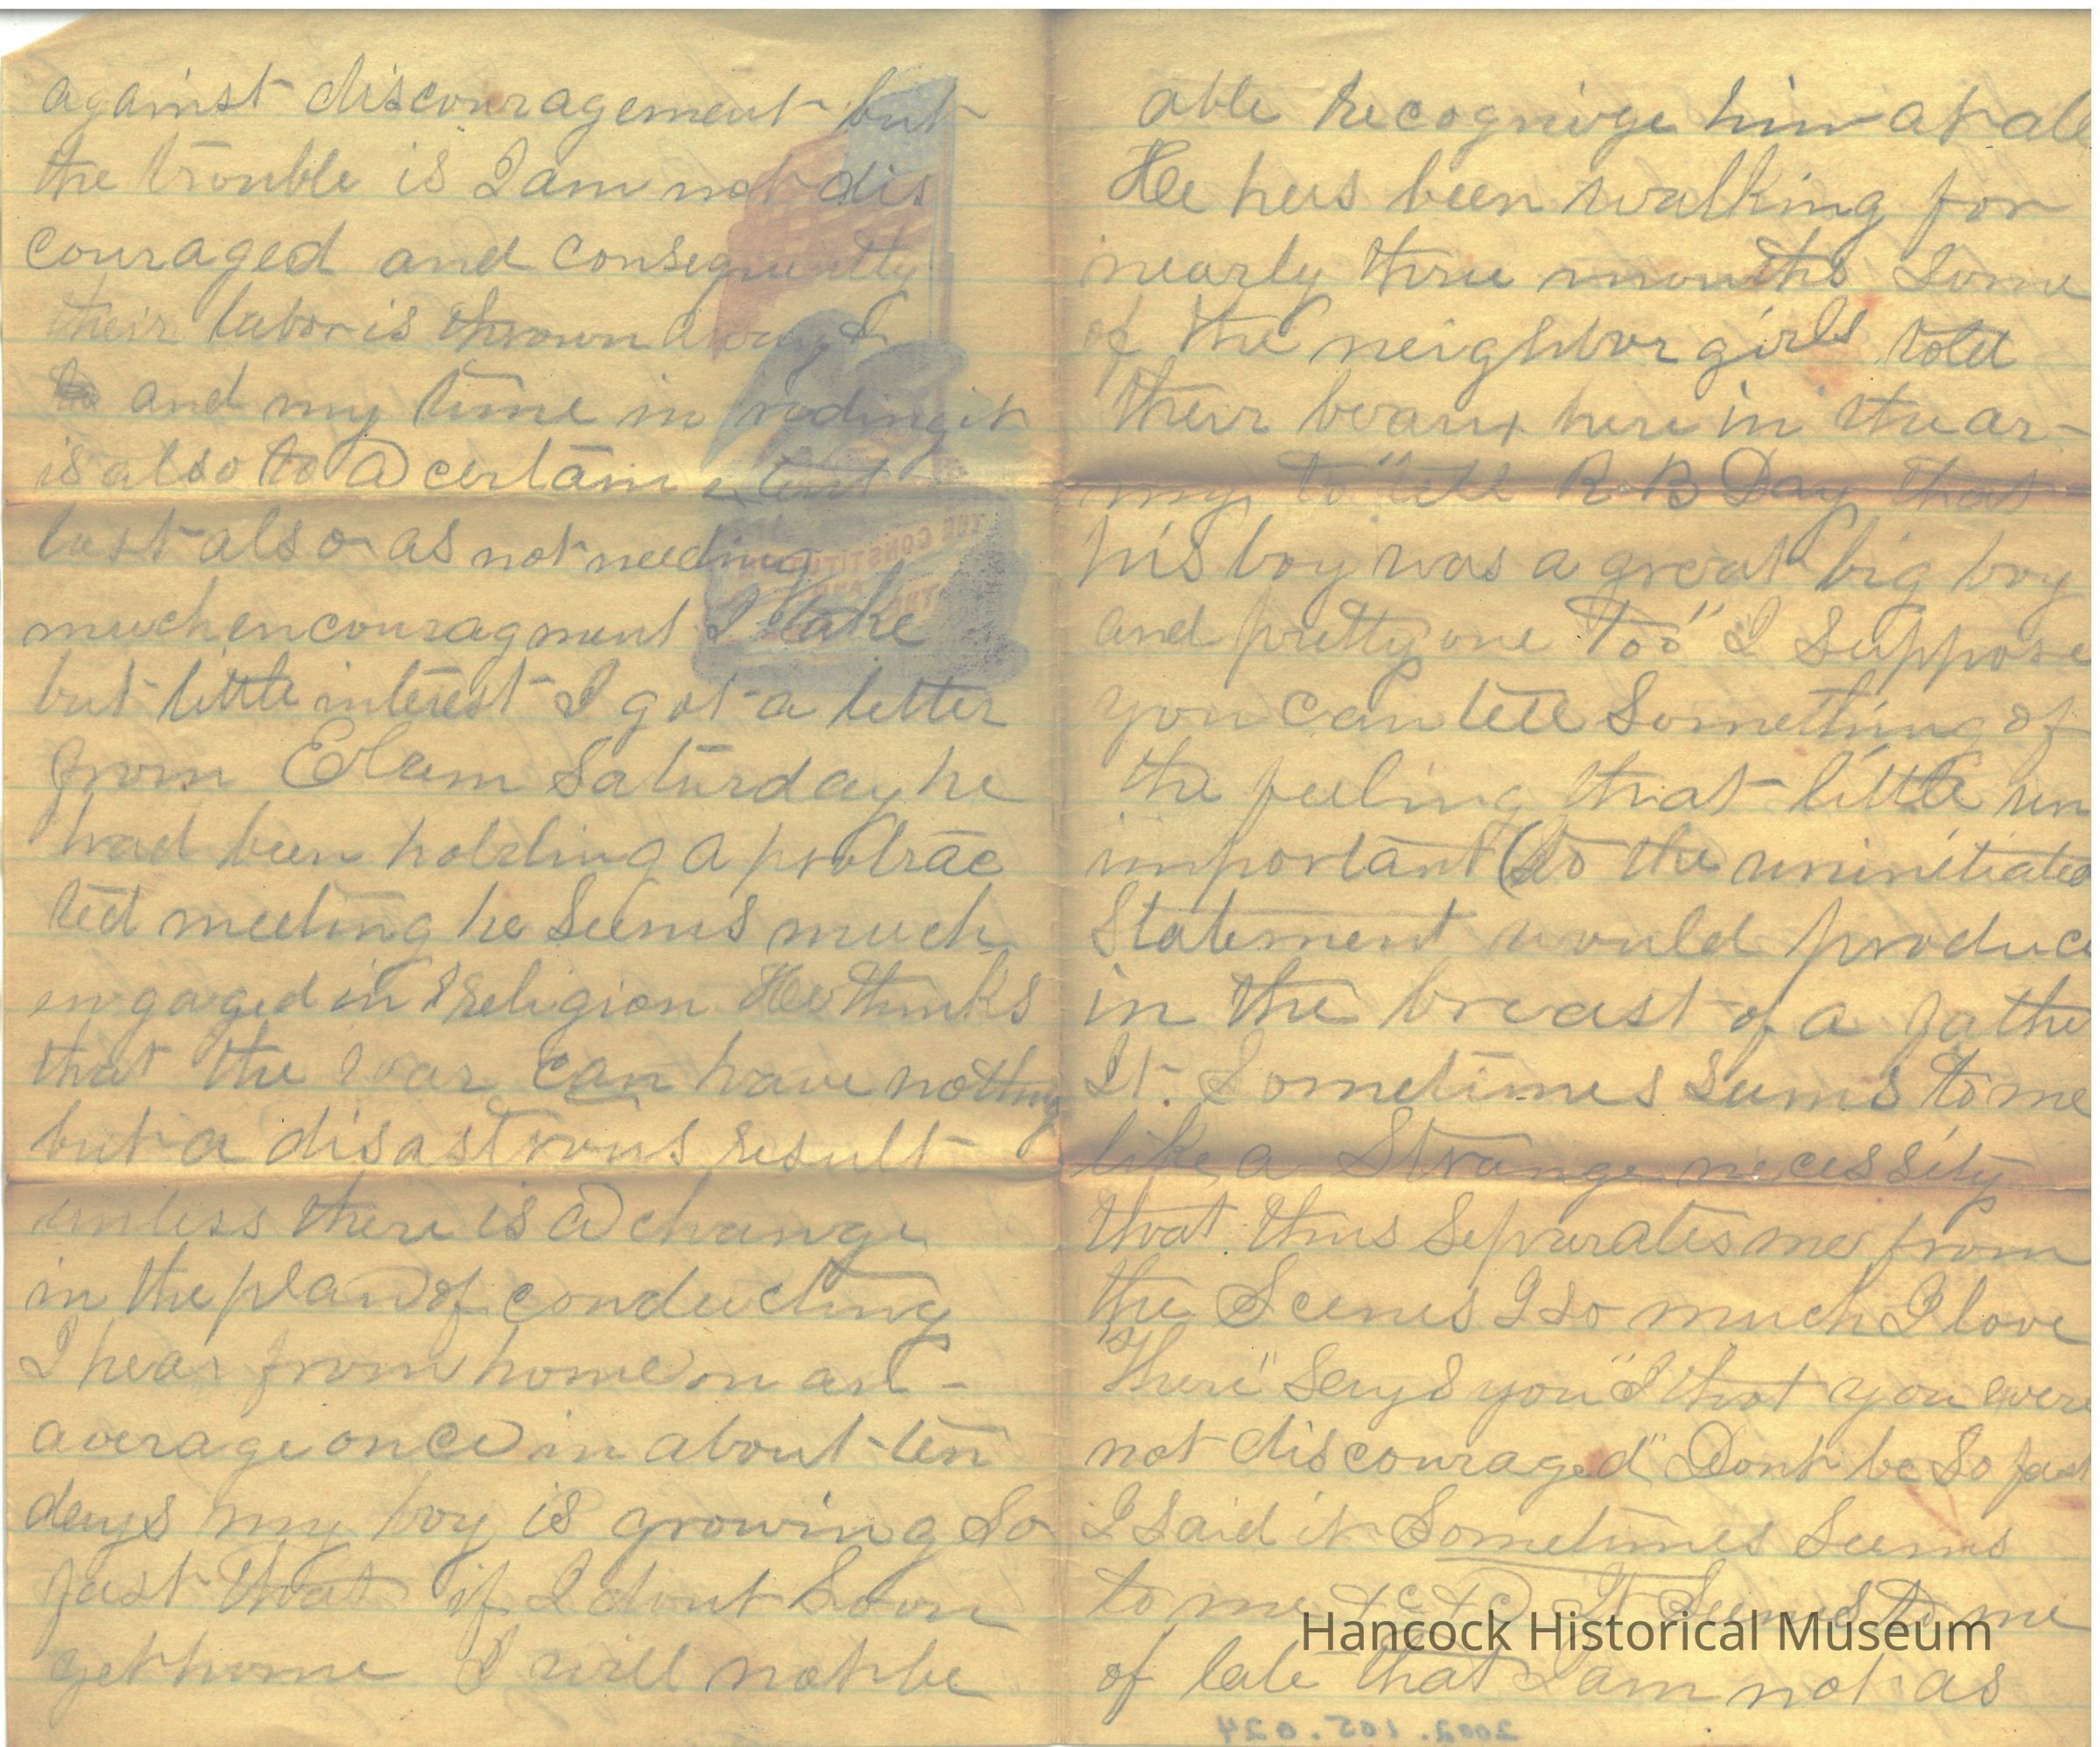 against discouragement but
the trouble is I am not dis
couraged and consequently
their labor is thrown away &
to and my time in reading it
is also to a certain extent
lost also as not needing
much encouragment I take
but little interest I got a letter
from Elam Saturday he
had been holding a protrac
ted meeting he seems much
engaged in religion He thinks
that the war can have nothing
but a disastrous result
unless there is a change
in the plan of conducting
I hear from home on an-
average once in about ten
days my boy is growing so
fast that if I dont soon
get home I will not be
able recognize him at all
He has been walking for
nearly three months Some
of the neighbor girls told
their beaux here in the ar-
my, to "tell R. B Day that
his boy was a great big boy
and pretty one Too" I suppose
you can tell something of
the feeling that little un
important (to the uninitiated
statement would produce
in the breast of a fathe
It. Sometimes seems to me
like a strange necessity
that thus separates me from
the Scenes I so much I love
"There" says you "I that you were
not discouraged" Dont be So fast
I said it Sometimes seems
to me &c &c It Seems to me
of late that I am not as
Hancock Historical Museum
2002.105.024
THE CONSTITUTION
THE